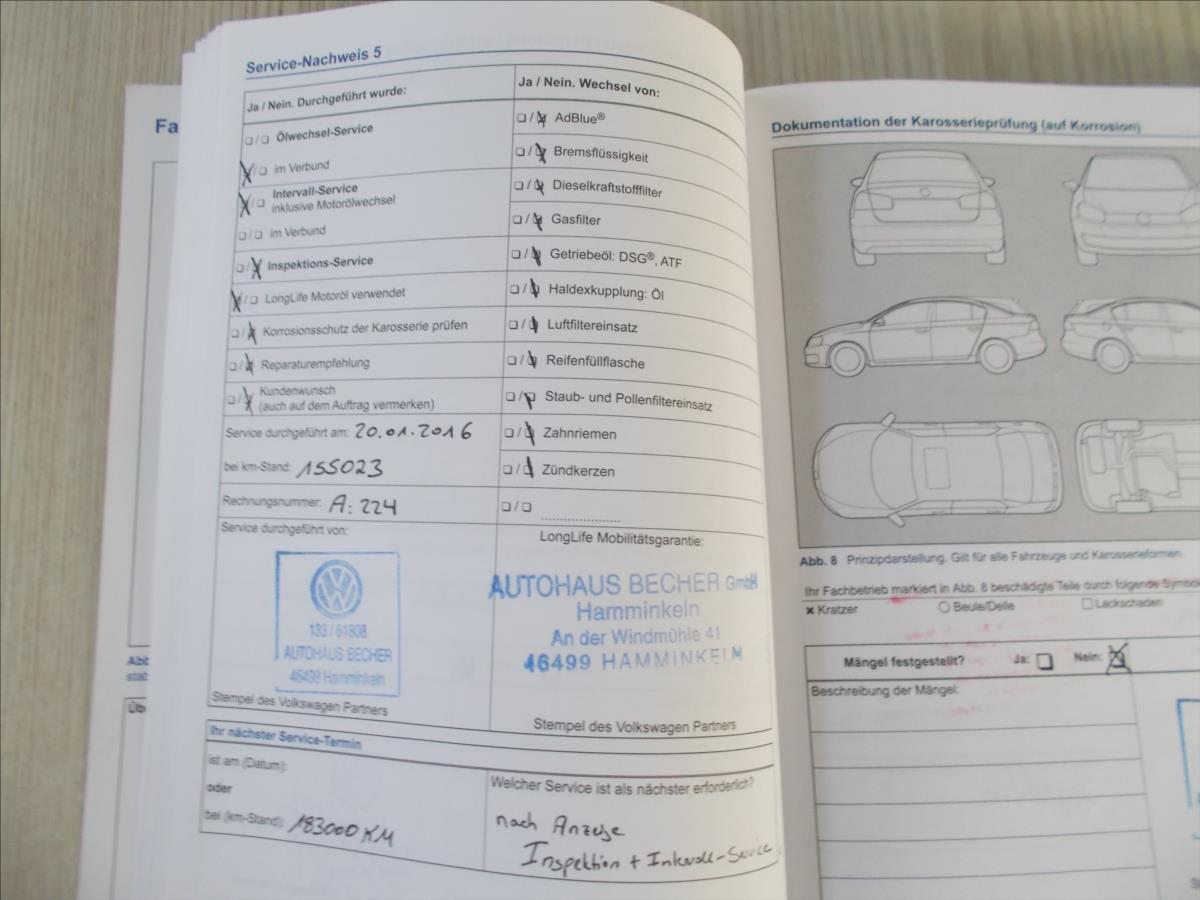 Service-Nachweis 5
Ja / Nein. Durchgeführt wurde:
Ölwechsel-Service
im Verbund
Intervall-Service
inklusive Motorölwechsel
im Verbund
Inspektions-Service
LongLife Motoröl verwendet
Korrosionsschutz der Karosserie prüfen
Reparaturempfehlung
Kundenwunsch
(auch auf dem Auftrag vermerken)
Service durchgeführt am: 20.01.2016
bei km-Stand: 155023
Rechnungsnummer: A: 224
Service durchgeführt von:
133 / 61808
AUTOHAUS BECHER
46499 Hamminkeln
Stempel des Volkswagen Partners
Ja / Nein. Wechsel von:
AdBlue®
Bremsflüssigkeit
Dieselkraftstofffilter
Gasfilter
Getriebeöl: DSG®, ATF
Haldexkupplung: Öl
Luftfiltereinsatz
Reifenfüllflasche
Staub- und Pollenfiltereinsatz
Zahnriemen
Zündkerzen
LongLife Mobilitätsgarantie:
AUTOHAUS BECHER GmbH
Hamminkeln
An der Windmühle 41
46499 HAMMINKELN
Stempel des Volkswagen Partners
Ihr nächster Service-Termin
ist am (Datum):
oder
bei (km-Stand): 183000 KM
Welcher Service ist als nächster erforderlich?
nach Anzeige
Inspektion + Intervall-Service
Fa
Abb
stab
Üb
Dokumentation der Karosserieprüfung (auf Korrosion)
Abb. 8 Prinzipdarstellung. Gilt für alle Fahrzeuge und Karosserieformen.
Ihr Fachbetrieb markiert in Abb. 8 beschädigte Teile durch folgende Symbo
Kratzer
Beule/Delle
Lackschaden
Mängel festgestellt? Ja: Nein:
Beschreibung der Mängel: